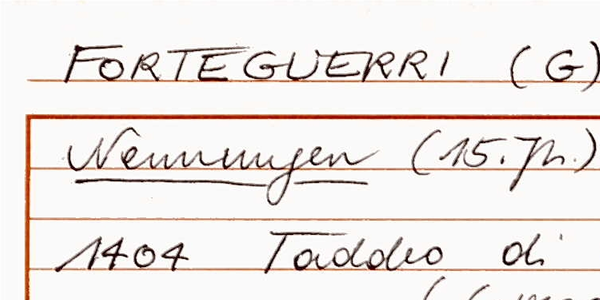 FORTEGUERRI (G)
Nennungen (15. Jh.)
1404 Taddeo di